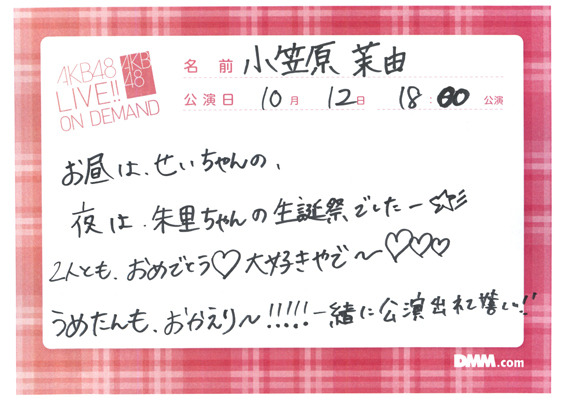 AKB48
LIVE!!
ON DEMAND
AKB
48
名前 小笠原 茉由
公演日 10月 12日 18:00 公演
お昼は、せいちゃんの、
夜は、朱里ちゃんの生誕祭でしたー☆彡
2人とも、おめでとう♡大好きやで〜♡♡♡
うめたんも、おかえり〜!!!!!一緒に公演出れて嬉しい!!
DMM.com